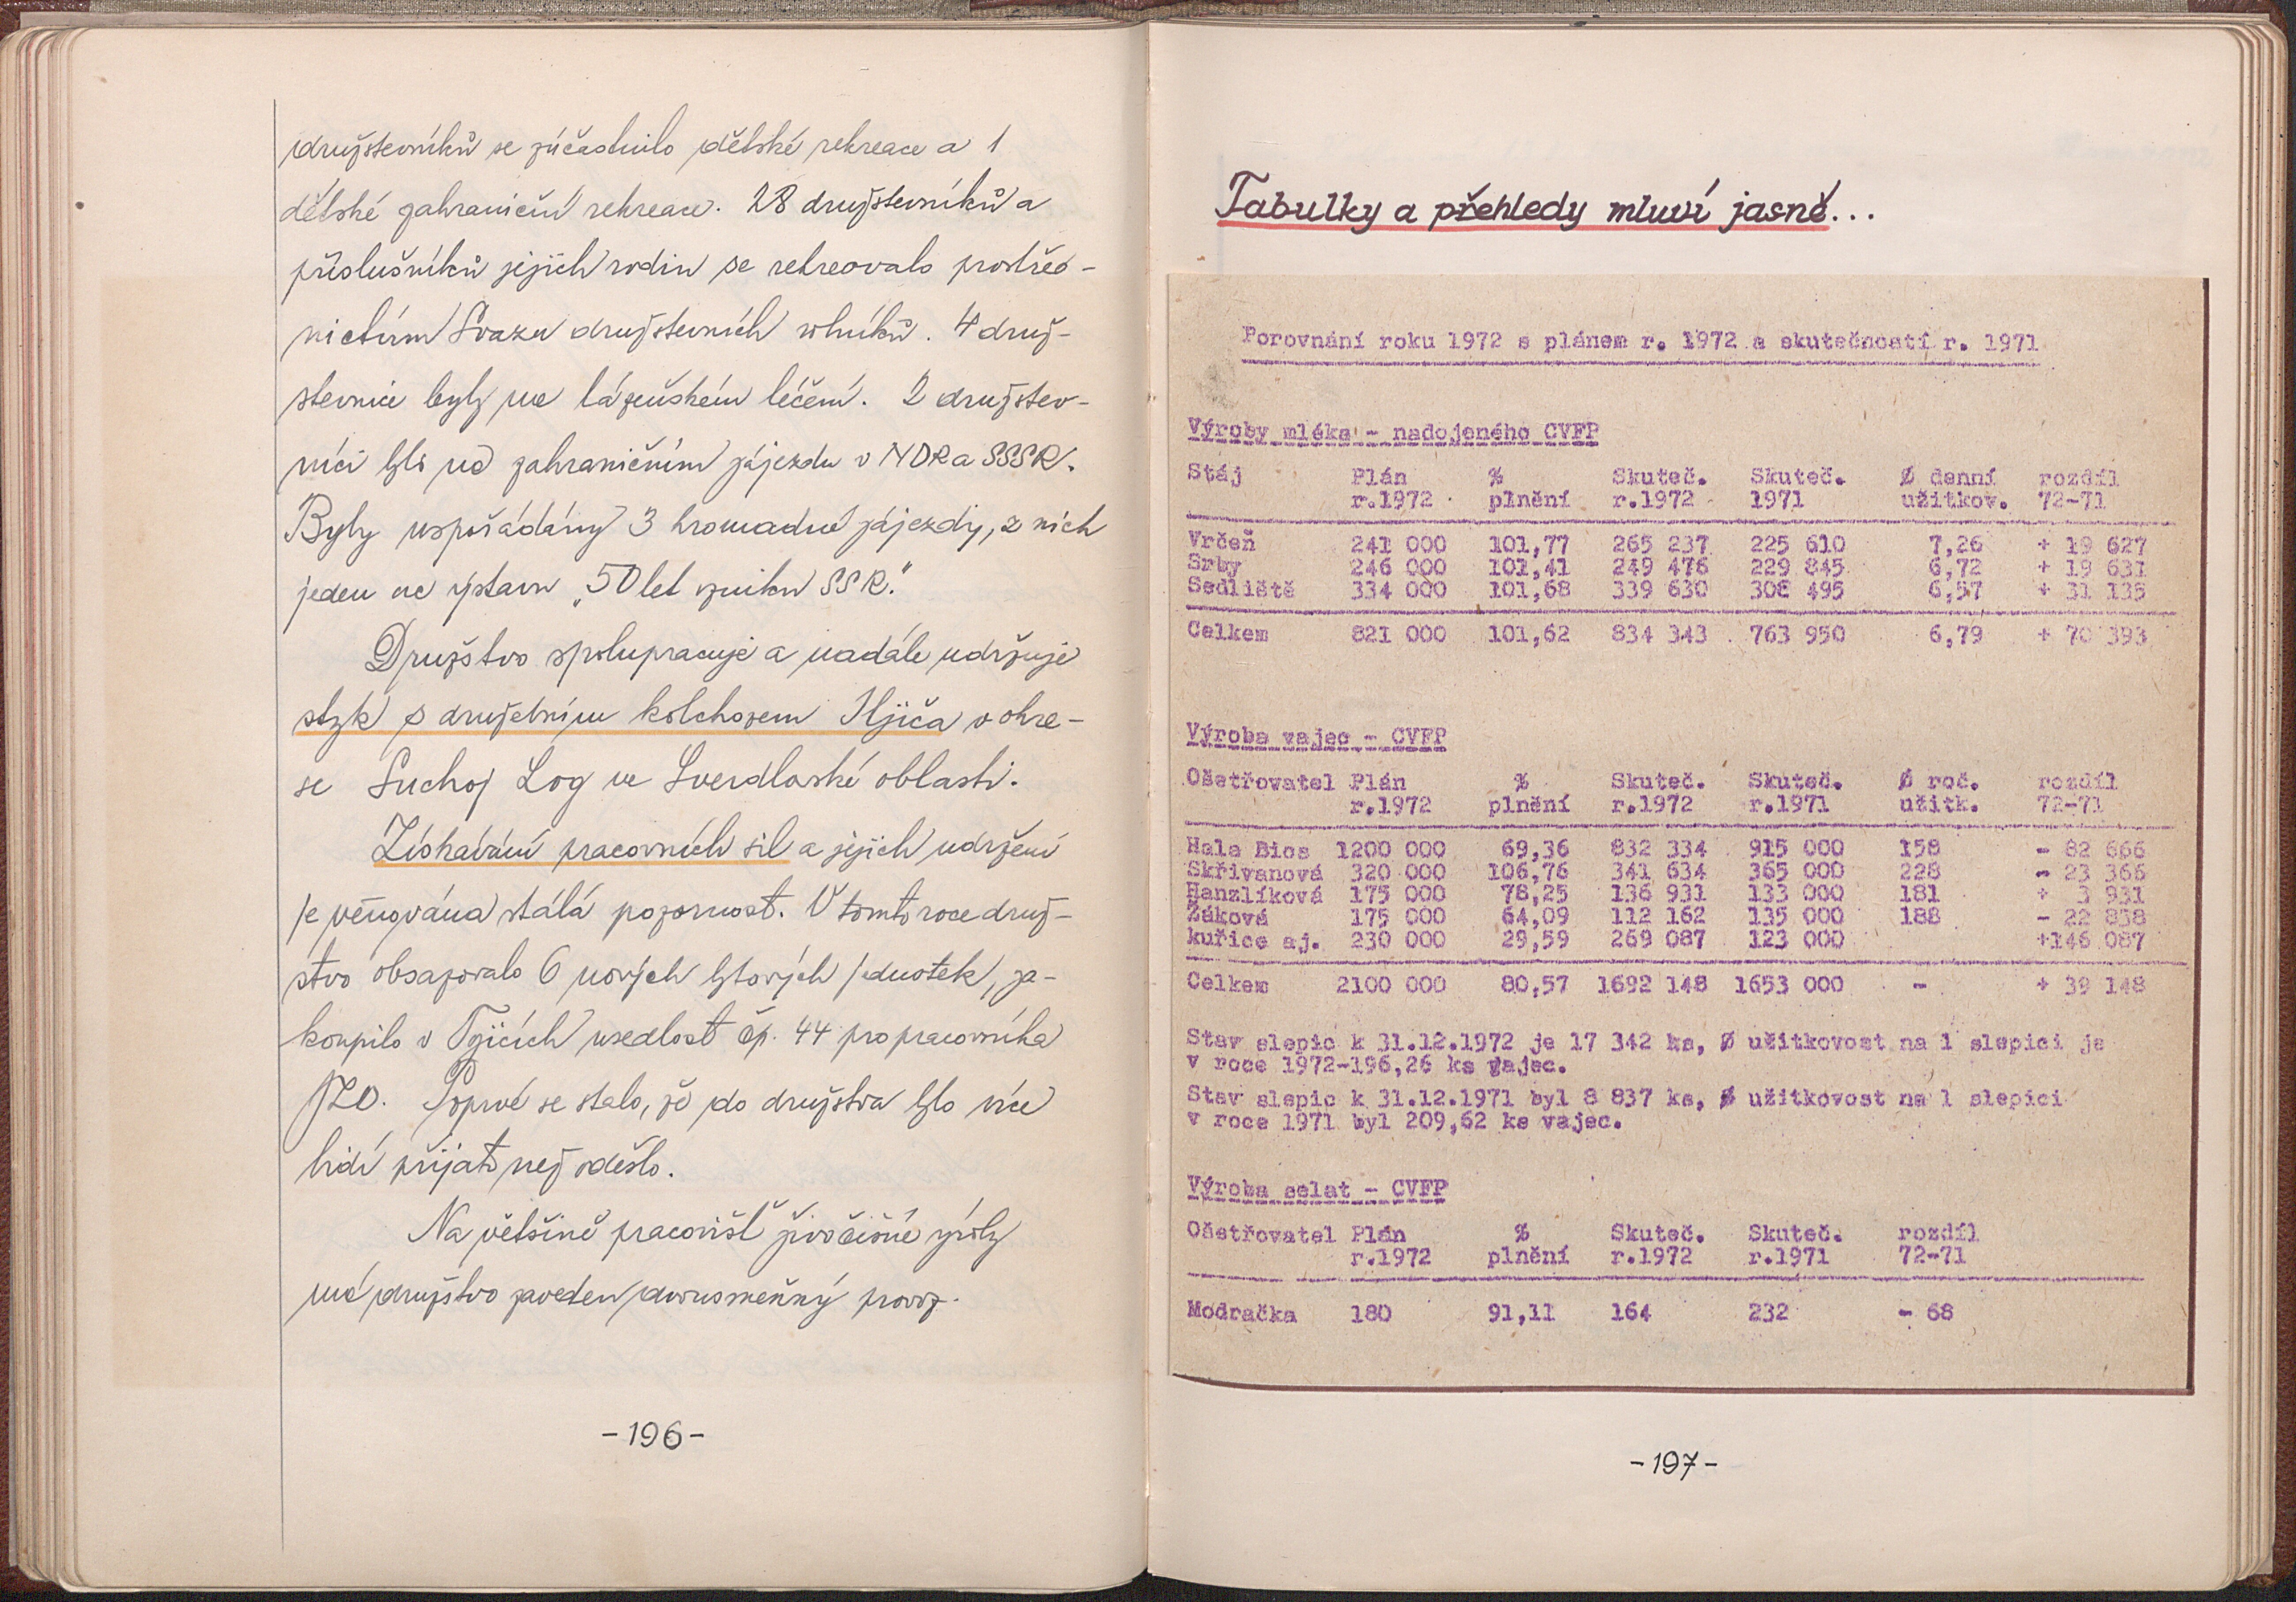 družstevníků se zúčastnilo dětské rekreace a 1
dětské zahraniční rekreace. 28 družstevníků a
příslušníků jejich rodin se rekreovalo prostřed-
nictvím Svazu družstevních rolníků. 4 druž-
stevnice byly na lázeňském léčení. 2 družstev-
níci byli na zahraničním zájezdu v NDR a SSSR.
Byly uspořádány 3 hromadné zájezdy, z nich
jeden na výstavu „50 let vzniku SSR."
Družstvo spolupracuje a nadále udržuje
styk s družebním kolchozem Iljiča v okre-
se Suchoj Log ve Sverdlovské oblasti.
Získávání pracovních sil a jejich udržení
je věnována stálá pozornost. V tomto roce druž-
stvo obsazovalo 6 nových bytových jednotek, za-
koupilo v Tojicích usedlost čp. 44 pro pracovníka
JZD. Poprvé se stalo, že do družstva bylo více
lidí přijato než odešlo.
Na většině pracovišť živočišné výroby
má družstvo zaveden dvousměnný provoz.
-196-
Tabulky a přehledy mluví jasně...
Porovnání roku 1972 s plánem r. 1972 a skutečností r. 1971
Výroby mléka - nadojeného CVFP
Stáj Plán % Skuteč. Skuteč. Ø denní rozdíl
r.1972 plnění r.1972 1971 užitkov. 72-71
Vrčeň 241 000 101,77 265 237 225 610 7,26 + 19 627
Srby 246 000 101,41 249 476 229 845 6,72 + 19 631
Sedliště 334 000 101,68 339 630 308 495 6,57 + 31 135
Celkem 821 000 101,62 834 343 763 950 6,79 + 70 393
Výroba vajec - CVFP
Ošetřovatel Plán % Skuteč. Skuteč. Ø roč. rozdíl
r.1972 plnění r.1972 r.1971 užitk. 72-71
Hala Bios 1200 000 69,36 832 334 915 000 158 - 82 666
Skřivanová 320 000 106,76 341 634 365 000 228 - 23 366
Hanzlíková 175 000 78,25 136 931 133 000 181 + 3 931
Žáková 175 000 64,09 112 162 135 000 188 - 22 838
kuřice aj. 230 000 29,59 269 087 123 000 +146 087
Celkem 2100 000 80,57 1692 148 1653 000 - + 39 148
Stav slepic k 31.12.1972 je 17 342 ks, Ø užitkovost na 1 slepici je
v roce 1972-196,26 ks vajec.
Stav slepic k 31.12.1971 byl 8 837 ks, Ø užitkovost na 1 slepici
v roce 1971 byl 209,62 ks vajec.
Výroba selat - CVFP
Ošetřovatel Plán % Skuteč. Skuteč. rozdíl
r.1972 plnění r.1972 r.1971 72-71
Modračka 180 91,11 164 232 - 68
-197-